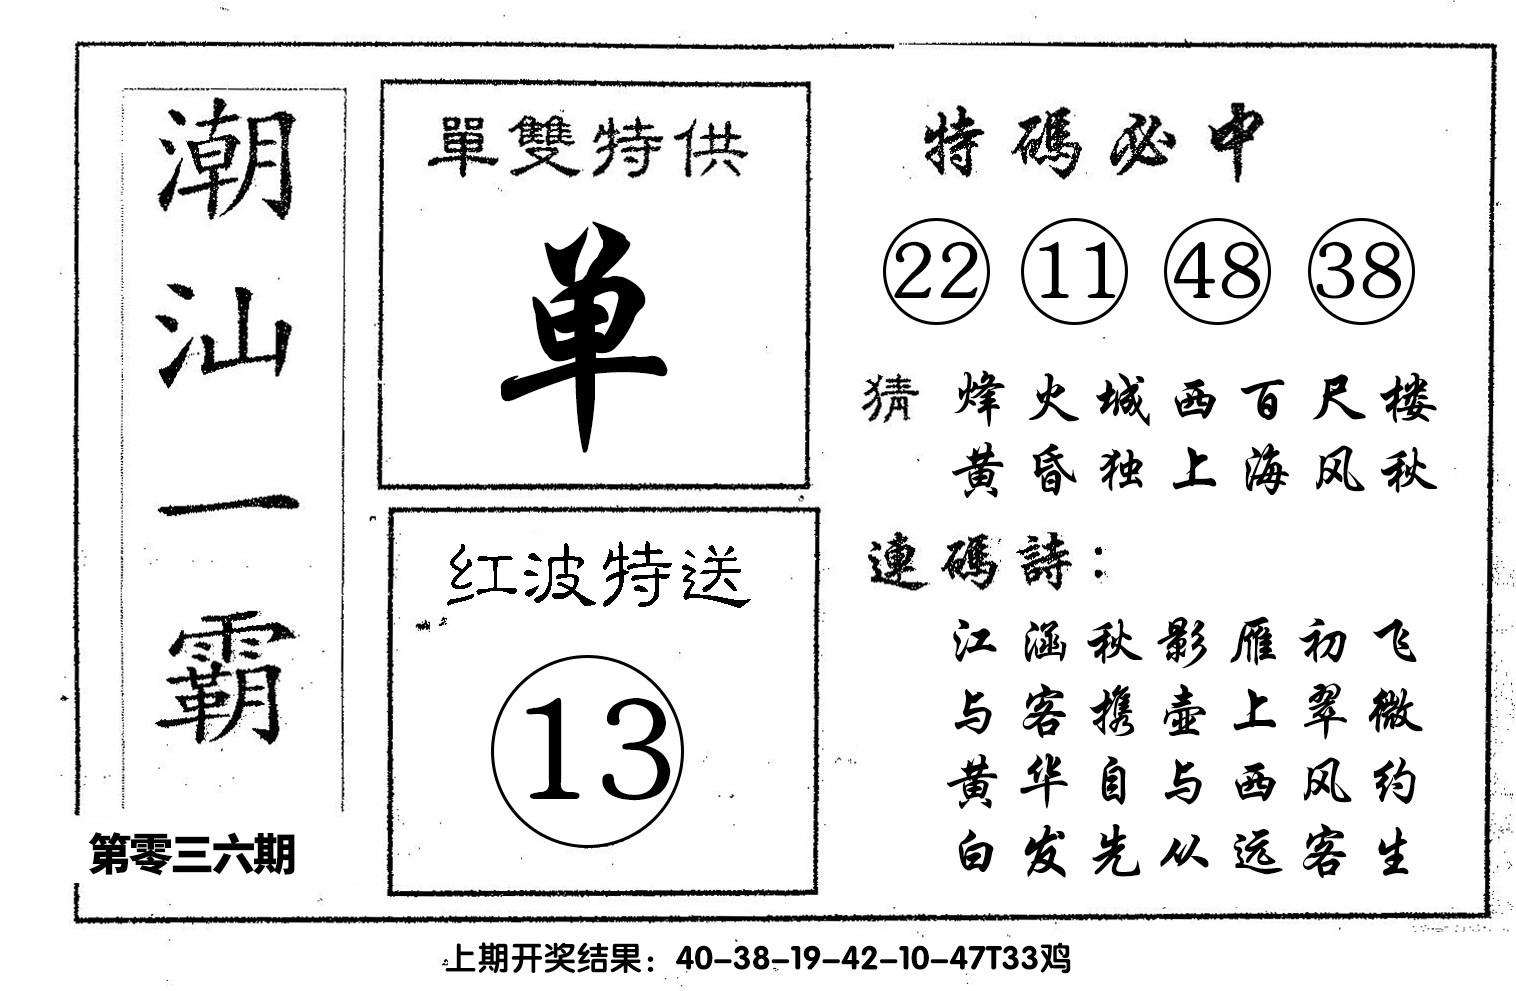 潮汕一霸
第零三六期
單雙特供
单
红波特送
13
特碼必中
22 11 48 38
猜 烽火城西百尺楼
黄昏独上海风秋
連碼詩：
江涵秋影雁初飞
与客携壶上翠微
黄华自与西风约
白发先从远客生
上期开奖结果：40-38-19-42-10-47T33鸡